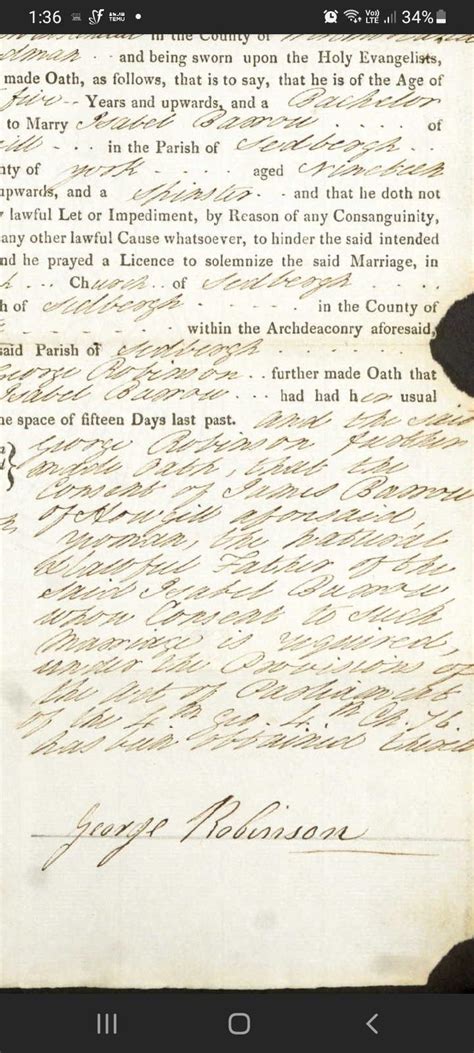 1:36
34%
in the County of
dman - - and being sworn upon the Holy Evangelists,
made Oath, as follows, that is to say, that he is of the Age of
five - - Years and upwards, and a Bachelor
to Marry Isabel Barrow of
ill - - - in the Parish of Sedbergh - -
nty of York - - - - aged Nineteen
upwards, and a Spinster - - and that he doth not
lawful Let or Impediment, by Reason of any Consanguinity,
any other lawful Cause whatsoever, to hinder the said intended
nd he prayed a Licence to solemnize the said Marriage, in
h - - - Church - - of Sedbergh - - - -
h of Sedbergh - - - - - in the County of
- - - - - within the Archdeaconry aforesaid,
said Parish of Sedbergh
George Robinson - - further made Oath that
Isabel Barrow - - - had had her usual
he space of fifteen Days last past. and the said
George Robinson further
made Oath, that the
Consent of James Barrow
of Howgill aforesaid,
the natural
& lawful Father of the
said Isabel Barrow
whose Consent to such
Marriage is required,
under the Provisions of
the Act of Parliament
of the 4th Geo. 4th Ch. 76
has been obtained
George Robinson